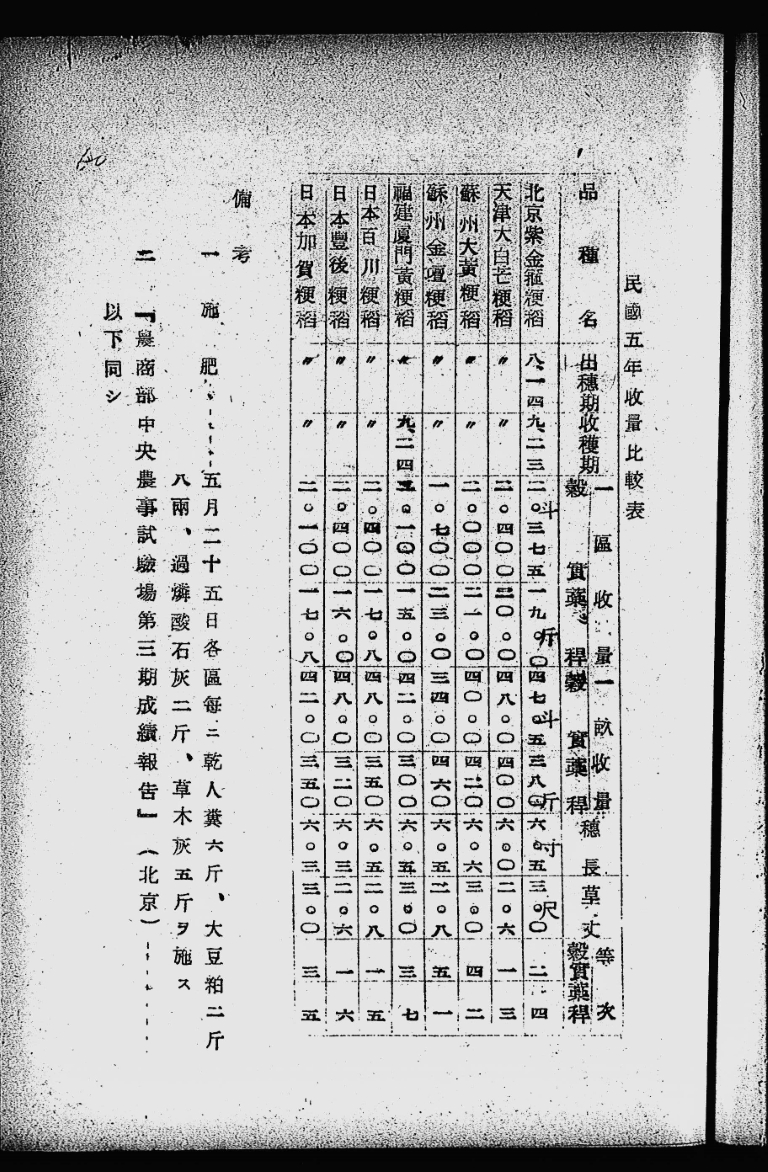 民國五年收量比較表
品種名 出穗期 收穫期 一區收量 穀實 藁稈 一畝收量 穀實 藁稈 穗長 草丈 等次 穀實 藁稈
斗 斤 斗 斤 寸 尺
北京紫金箍粳稻 八、一四 九、二三 二。三七五 一九。〇 四七。五 三八〇 六。五 三。〇 二 四
天津大白芒粳稻 〃 〃 二。四〇〇 二〇。〇〇 四八。〇 四〇〇 六。〇 二。六 一 三
蘇州大黃粳稻 〃 〃 二。〇〇〇 二一。〇〇 四〇。〇 四二〇 六。六 三。〇 四 二
蘇州金壇粳稻 〃 〃 一。七〇〇 二三。〇〇 三四。〇 四六〇 六。五 二。八 五 一
福建厦門黃粳稻 〃 九、二四 二。一〇〇 一五。〇〇 四二。〇 三〇〇 六。五 三。〇 三 七
日本百川粳稻 〃 〃 二。四〇〇 一七。八 四八。〇 三五〇 六。五 二。八 一 五
日本豐後粳稻 〃 〃 二。四〇〇 一六。〇〇 四八。〇 三二〇 六。三 二。六 一 六
日本加賀粳稻 〃 〃 二。一〇〇 一七。八 四二。〇 三五〇 六。三 三。〇 三 五
備考
一 施肥……五月二十五日各區每ニ乾人糞六斤、大豆粕二斤
八兩、過燐酸石灰二斤、草木灰五斤ヲ施ス
二 『農商部中央農事試驗場第三期成績報告』（北京）……
以下同シ